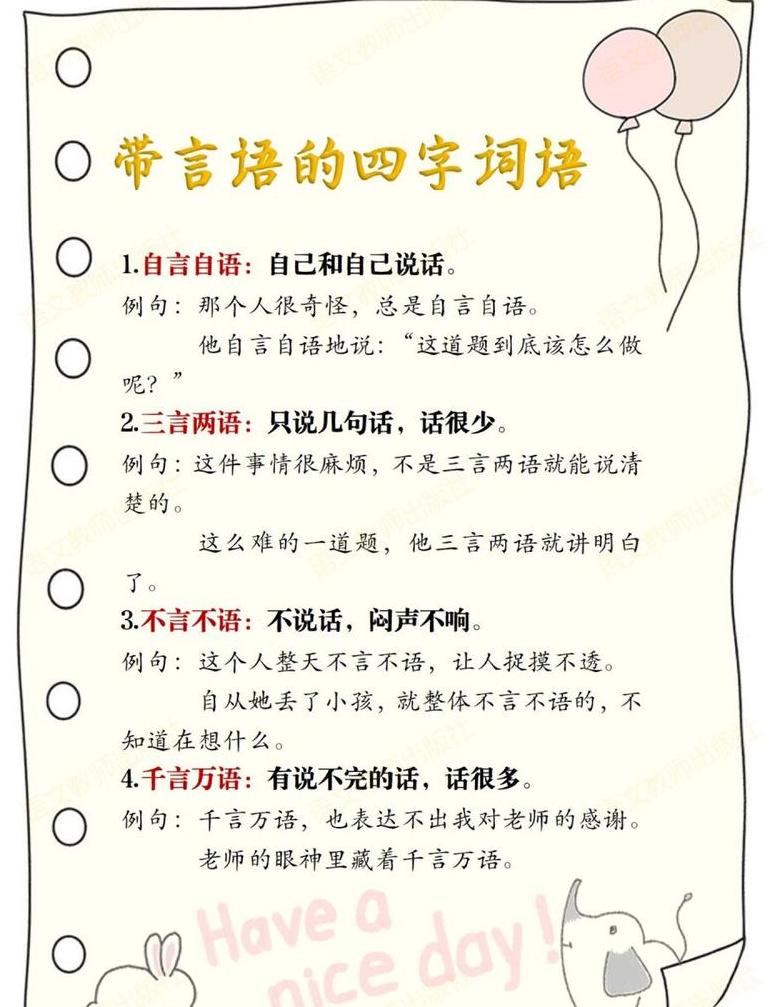 带言语的四字词语
1.自言自语：自己和自己说话。
例句：那个人很奇怪，总是自言自语。
他自言自语地说：“这道题到底该怎么做
呢？”
2.三言两语：只说几句话，话很少。
例句：这件事情很麻烦，不是三言两语就能说清
楚的。
这么难的一道题，他三言两语就讲明白
了。
3.不言不语：不说话，闷声不响。
例句：这个人整天不言不语，让人捉摸不透。
自从她丢了小孩，就整体不言不语的，不
知道在想什么。
4.千言万语：有说不完的话，话很多。
例句：千言万语，也表达不出我对老师的感谢。
老师的眼神里藏着千言万语。
Have a
nice day!
语文教师出版社